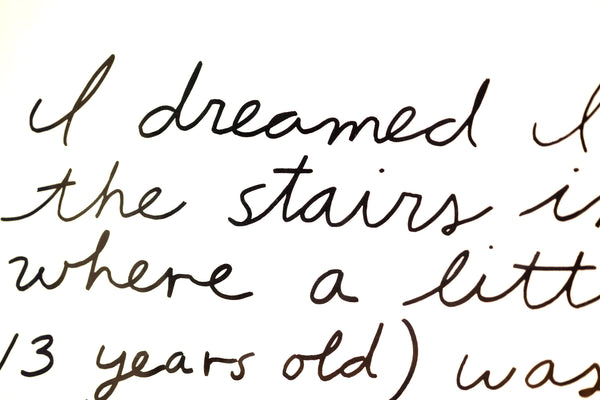 I dreamed I
the stairs
where a
13 years old) was